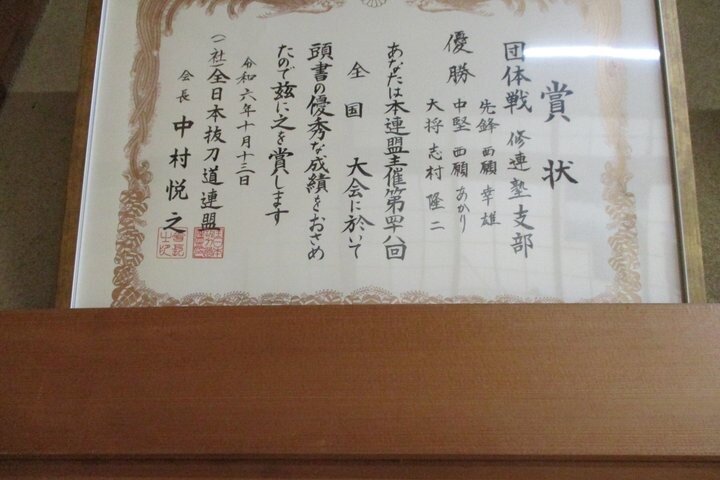 賞状
団体戦 修連塾支部
先鋒 西願 幸雄
優勝 中堅 西願 あかり
大将 志村 隆二
あなたは本連盟主催第四八回
全国 大会に於いて
頭書の優秀な成績をおさめ
たので玆に之を賞します
令和六年十月十三日
(社)全日本抜刀道連盟
会長 中村悦之